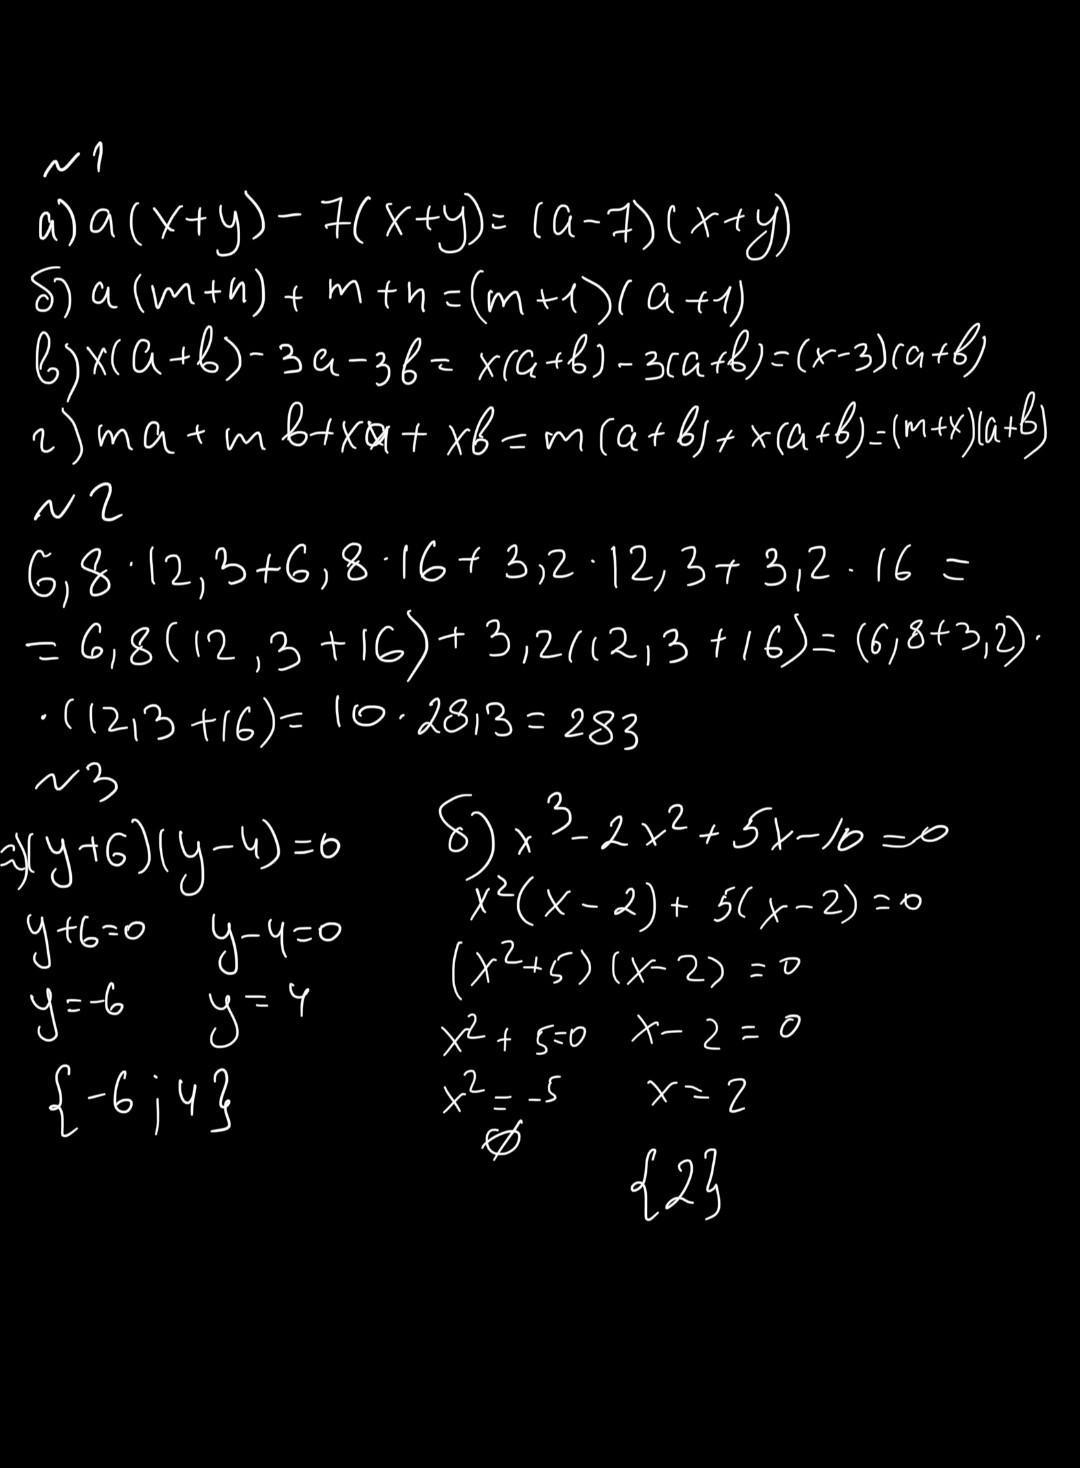 ~1
а) a(x+y) - 7(x+y) = (a-7)(x+y)
б) a(m+n) + m+n = (m+1)(a+1)
в) x(a+b) - 3a - 3b = x(a+b) - 3(a+b) = (x-3)(a+b)
г) ma + mb + xa + xb = m(a+b) + x(a+b) = (m+x)(a+b)
~2
6,8 · 12,3 + 6,8 · 16 + 3,2 · 12,3 + 3,2 · 16 =
= 6,8(12,3 + 16) + 3,2(12,3 + 16) = (6,8+3,2) ·
· (12,3 + 16) = 10 · 28,3 = 283
~3
а) (y+6)(y-4) = 0
y+6=0 y-4=0
y=-6 y=4
{-6;4}
б) x³ - 2x² + 5x - 10 = 0
x²(x-2) + 5(x-2) = 0
(x²+5)(x-2) = 0
x² + 5=0 x-2 = 0
x² = -5 x = 2
∅
{2}